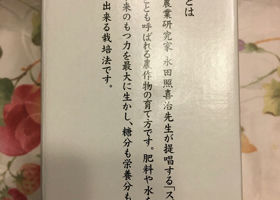 とは
農業研究家 永田照喜治先生が提唱する「ス
とも呼ばれる農作物の育て方です。肥料や水を
来のもつ力を最大に生かし、糖分も栄養分も
出来る栽培法です。